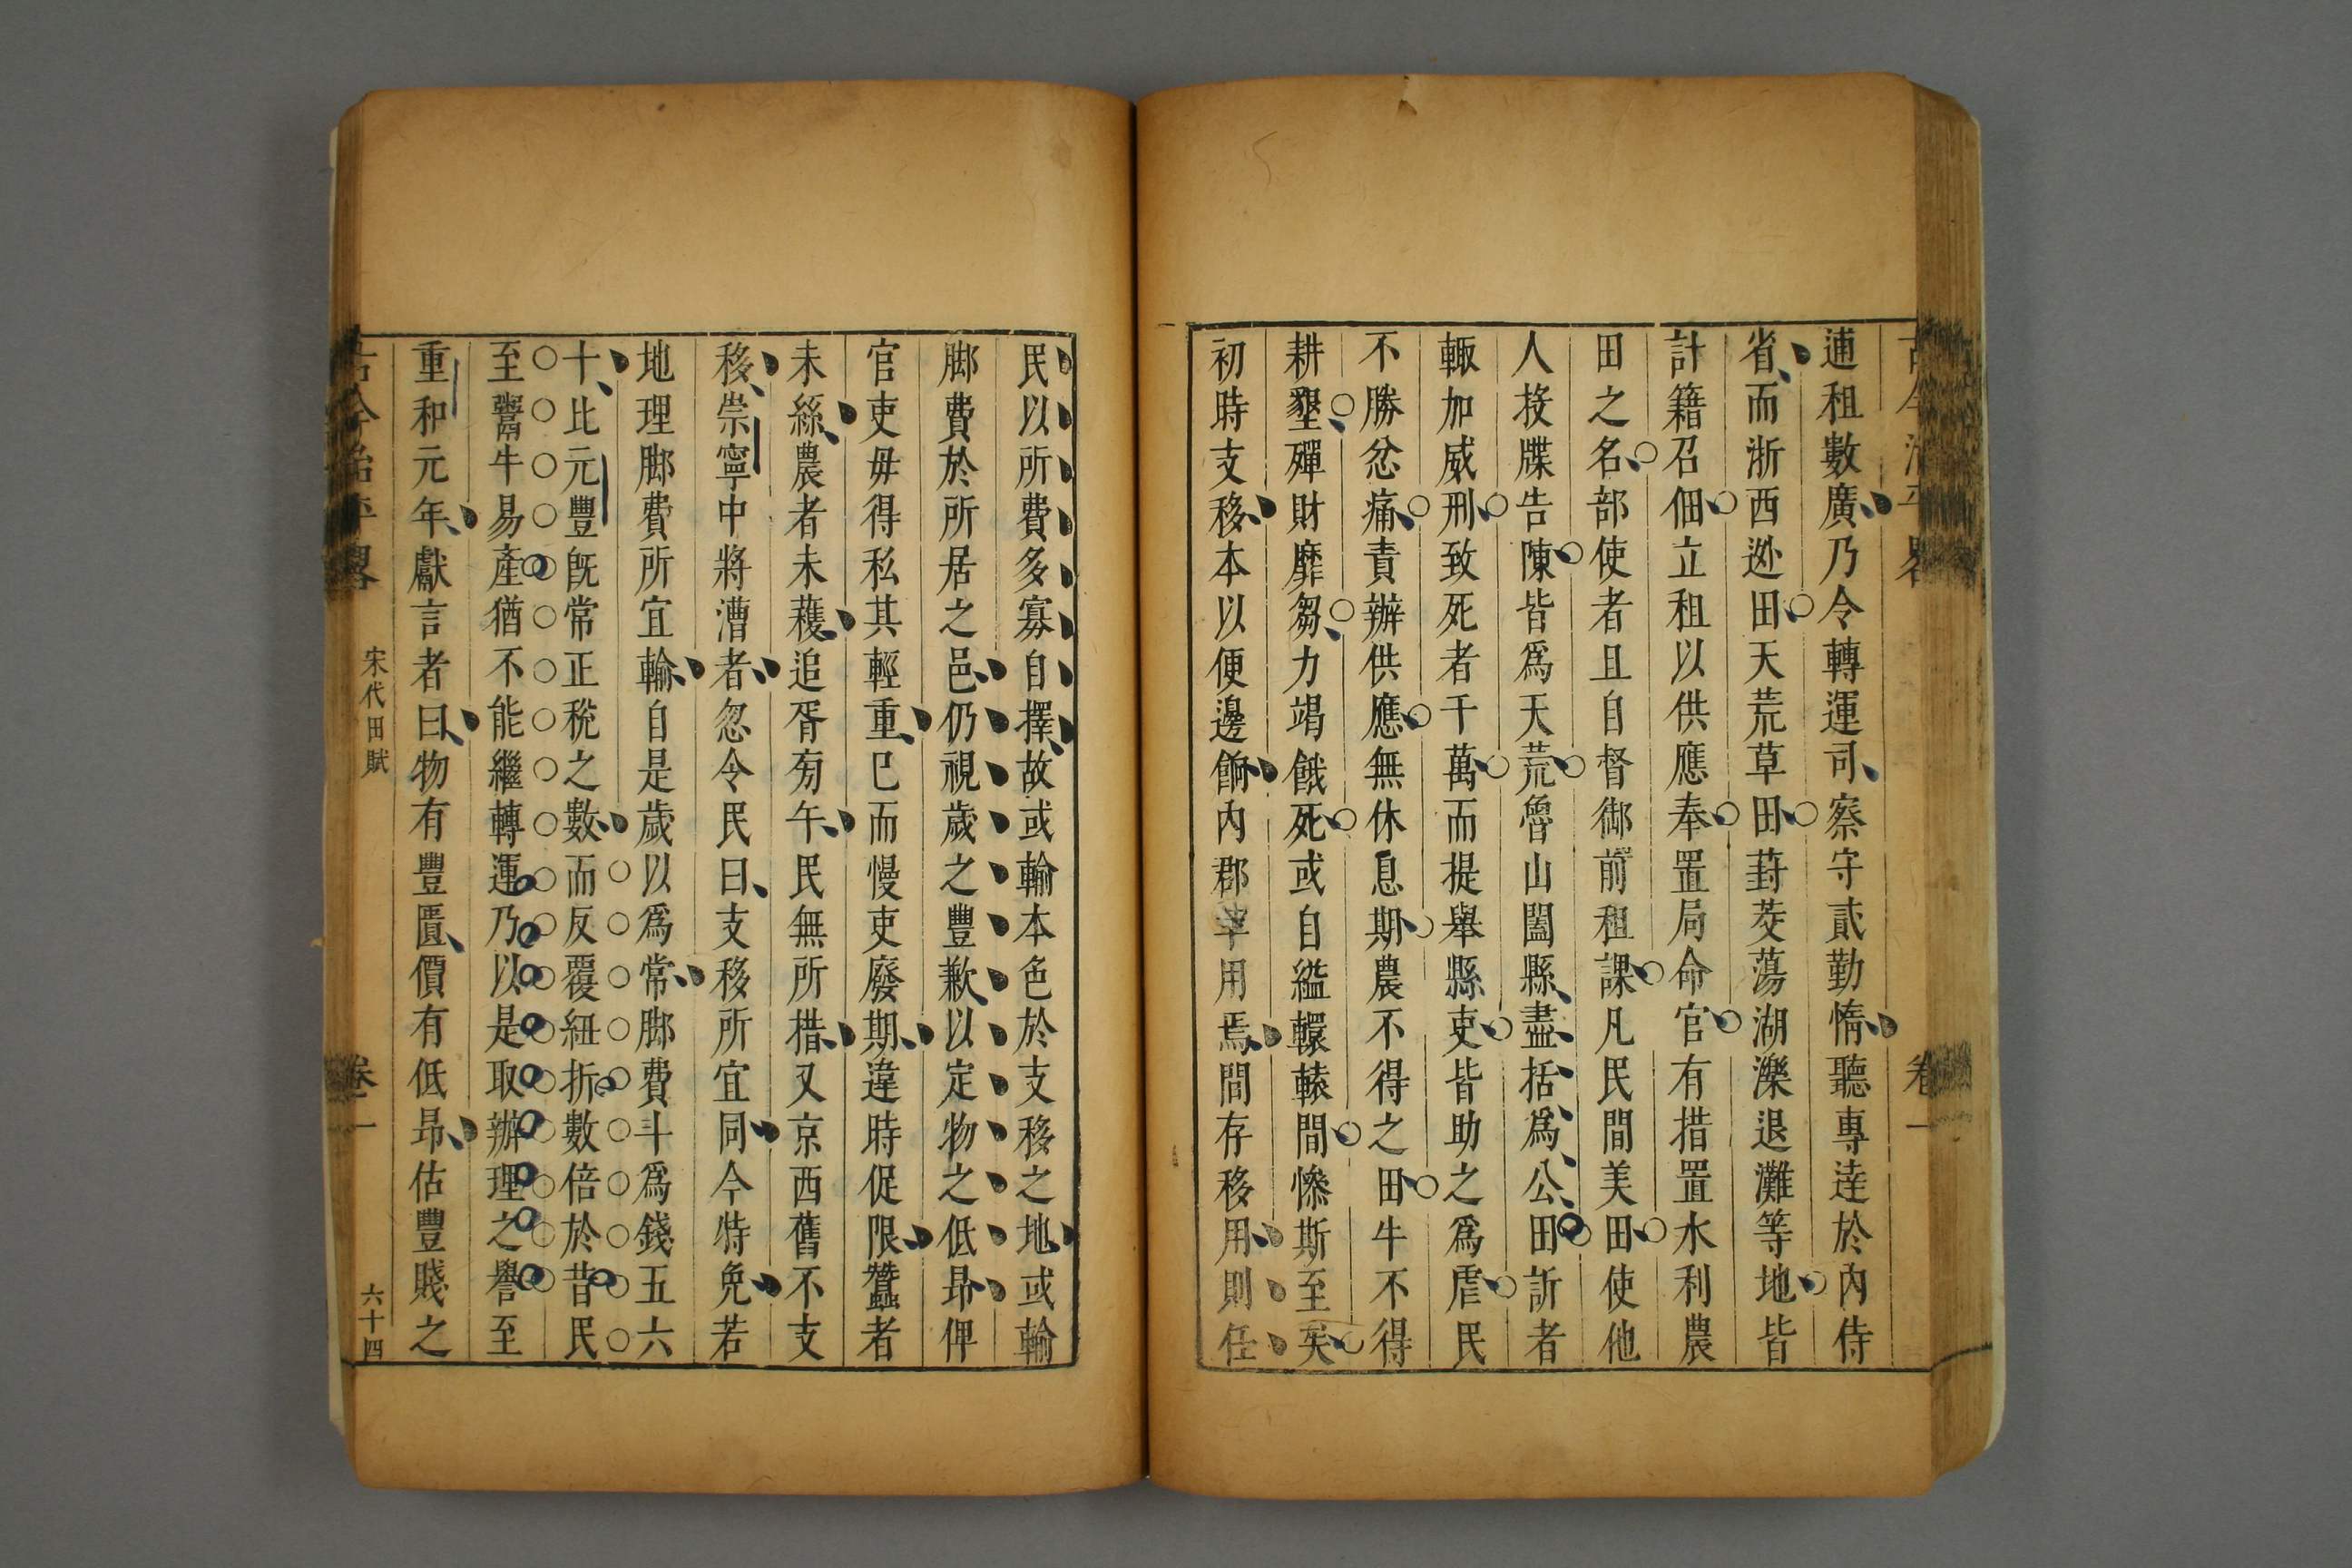 逋租數廣乃令轉運司察守貳勤惰聽專逹於內侍
省而浙西逊田天荒草田葑茭蕩湖濼退灘等地皆
計籍召佃立租以供應奉置局命官有措置水利農
田之名部使者且自督御前租課凡民間美田使他
人投牒告陳皆爲天荒魯山闔縣盡括爲公田訢者
輙加威刑致死者千萬而提舉縣吏皆助之爲虐民
不勝忿痛責辦供應無休息期農不得之田牛不得
耕墾殫財靡芻力竭餓死或自縊轘轅間慘斯至矣
初時支移本以便邊餉內郡罕用焉間存移用則任
民以所費多寡自擇故或輸本色於支移之地或輸
脚費於所居之邑仍視歲之豐歉以定物之低昻俾
官吏毋得私其輕重已而慢吏廢期違時促限蠶者
未絲農者未穫追胥旁午民無所措又京西舊不支
移崇寧中將漕者忽令民曰支移所宜同今特免若
地理脚費所宜輸自是歲以爲常脚費斗爲錢五六
十比元豐旣常正稅之數而反覆紐折數倍於昔民
至鬻牛易產猶不能繼轉運乃以是取辦理之譽至
重和元年獻言者曰物有豐匱價有低昻估豐賤之
古今治平畧
宋代田賦
卷一
六十四